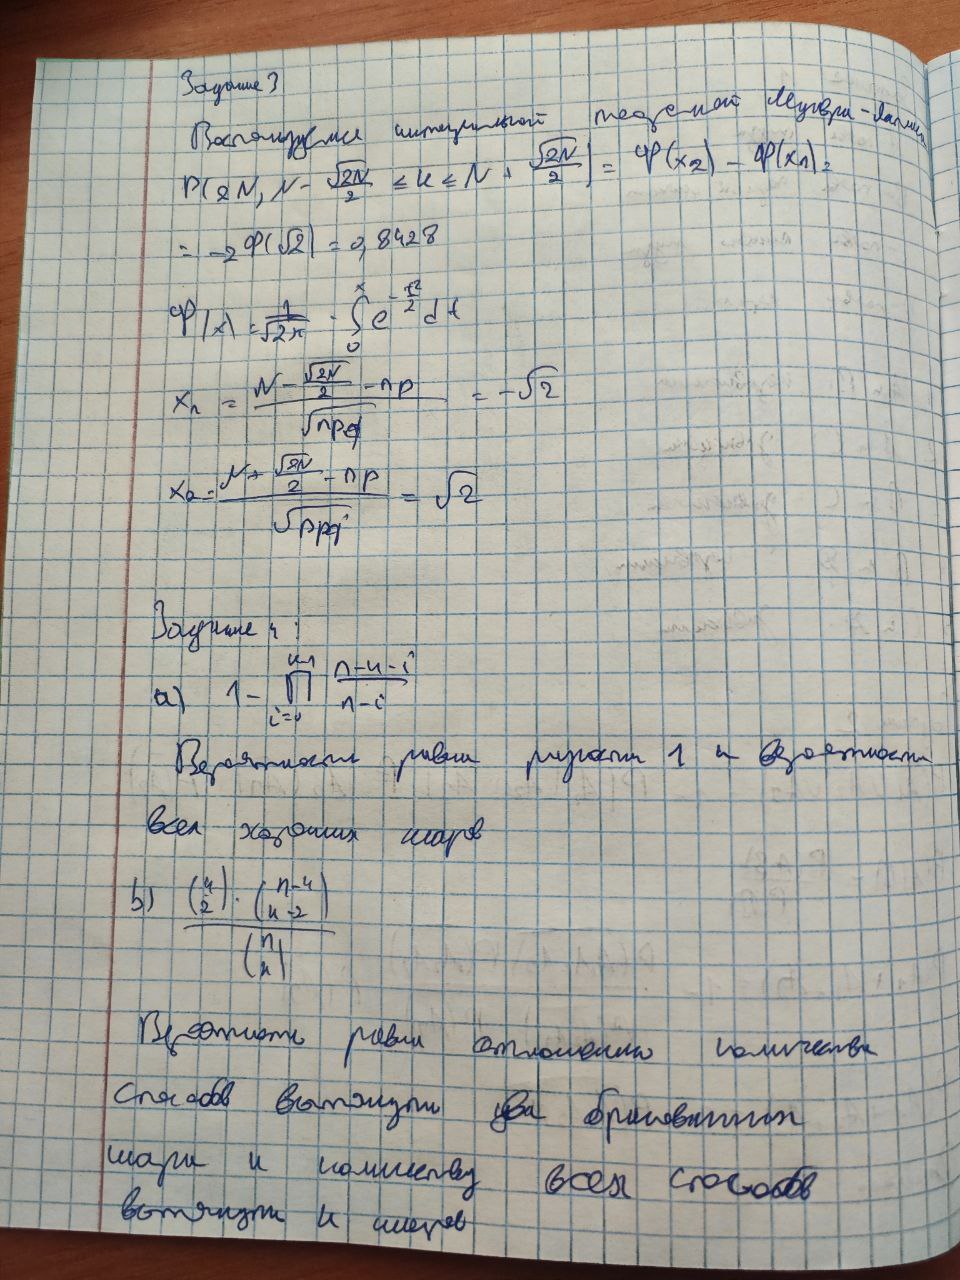 Задание 3
Воспользуемся интегральной теоремой Муавра-Лапласа
P(2N, N - √2N/2 ≤ k ≤ N + √2N/2) = Ф(x₂) - Ф(x₁) =
= -2Ф(√2) = 0,8428
Ф(x) = 1/√2π · ∫₀ˣ e^(-t²/2) dt
x₁ = (N - √2N/2 - np)/√npq = -√2
x₂ = (N + √2N/2 - np)/√npq = √2
Задание 4:
a) 1 - ∏_{i=0}^{k-1} (n-k-i)/(n-i)
Вероятность равна разности 1 и вероятности
всех хороших шаров
b) (4 2) · (n-4 k-2) / (n k)
Вероятность равна отношению количества
способов вытянуть два бракованных
шара к количеству всех способов
вытянуть k шаров